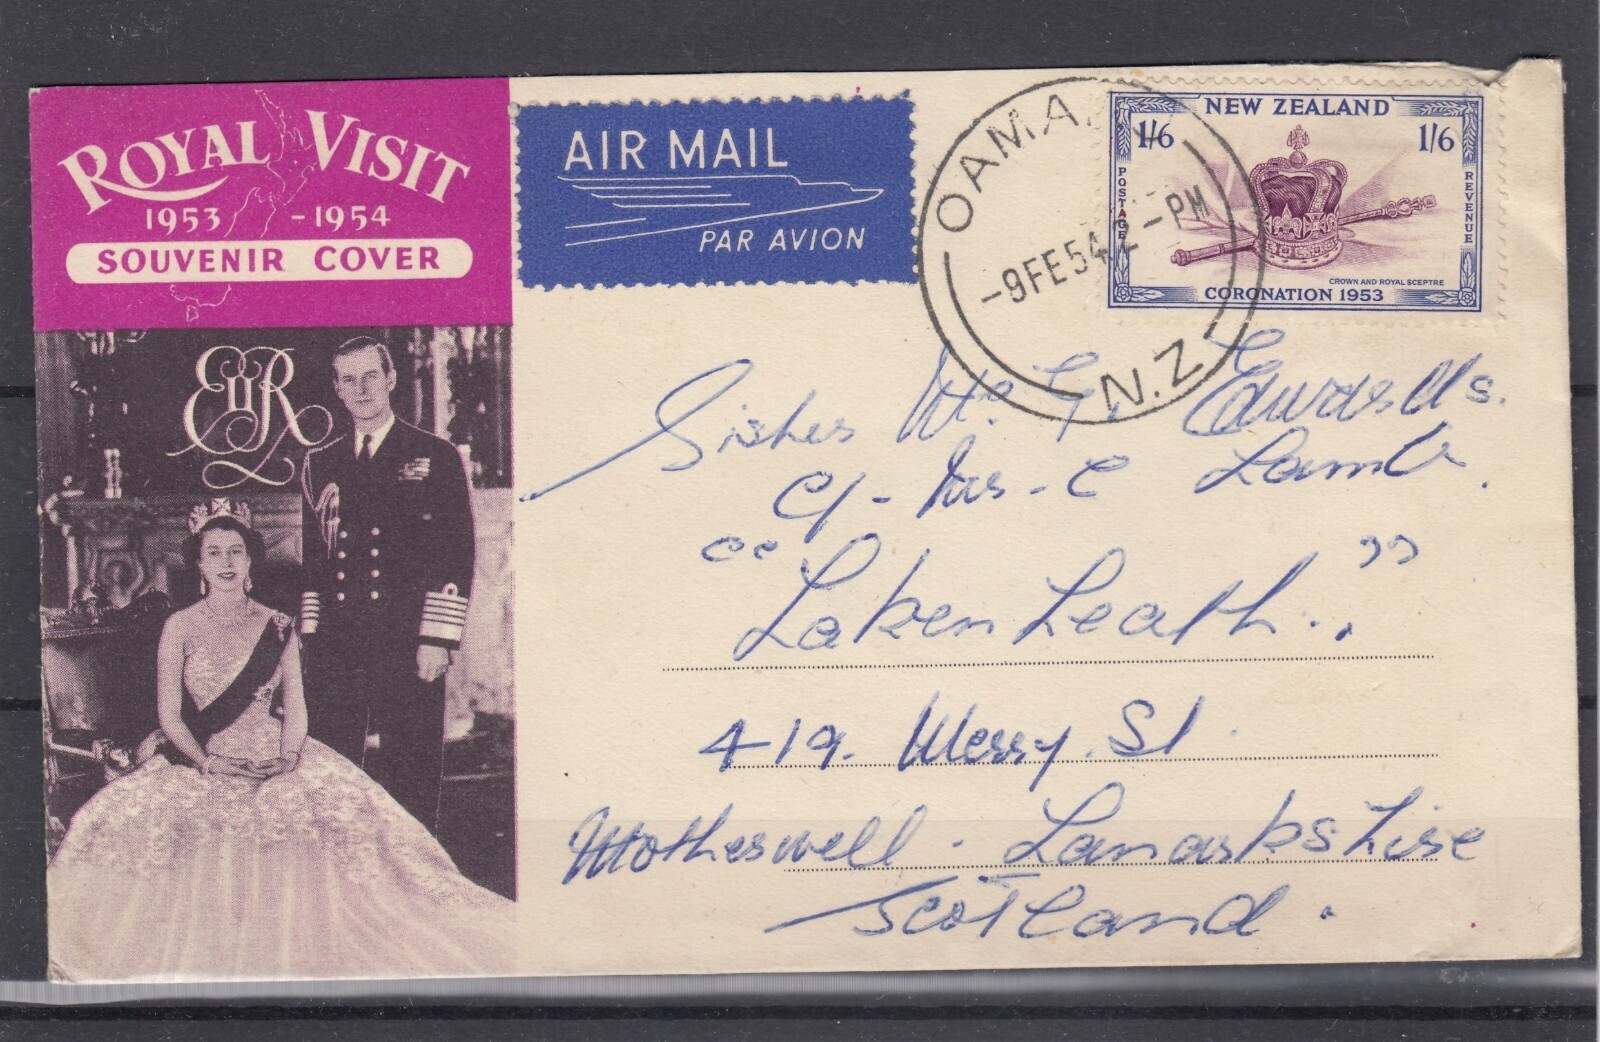 ROYAL VISIT
1953 - 1954
SOUVENIR COVER
EIIR
AIR MAIL
PAR AVION
OAMA
-9FE54 2-PM
N.Z
NEW ZEALAND
1/6 1/6
POSTAGE
REVENUE
CROWN AND ROYAL SCEPTRE
CORONATION 1953
Sister
c/- Mrs - C Lamb.
"Lakenheath.,"
419. Merry. St.
Motherwell. Lanarkshire
Scotland.